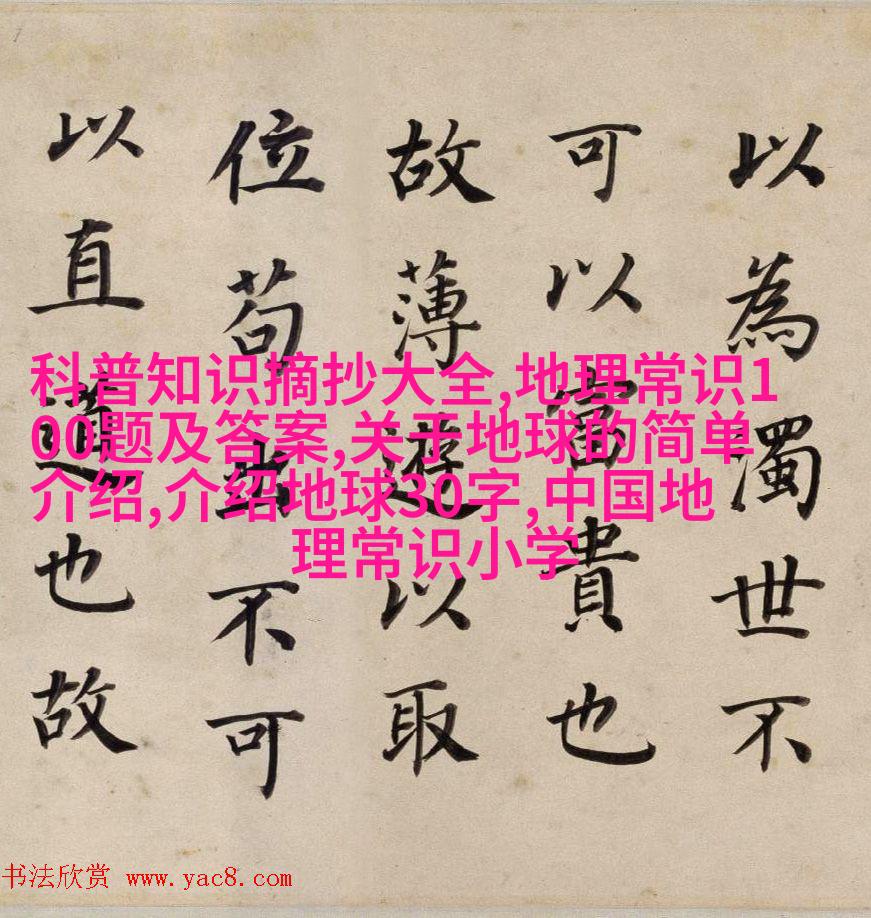 以為濁世不
可以富貴也
故薄遊以取
位苟出不可
以直道也故
科普知识摘抄大全,地理常识1
00题及答案,关于地球的简单
介绍,介绍地球30字,中国地
理常识小学
书法欣赏 www.yac8.com